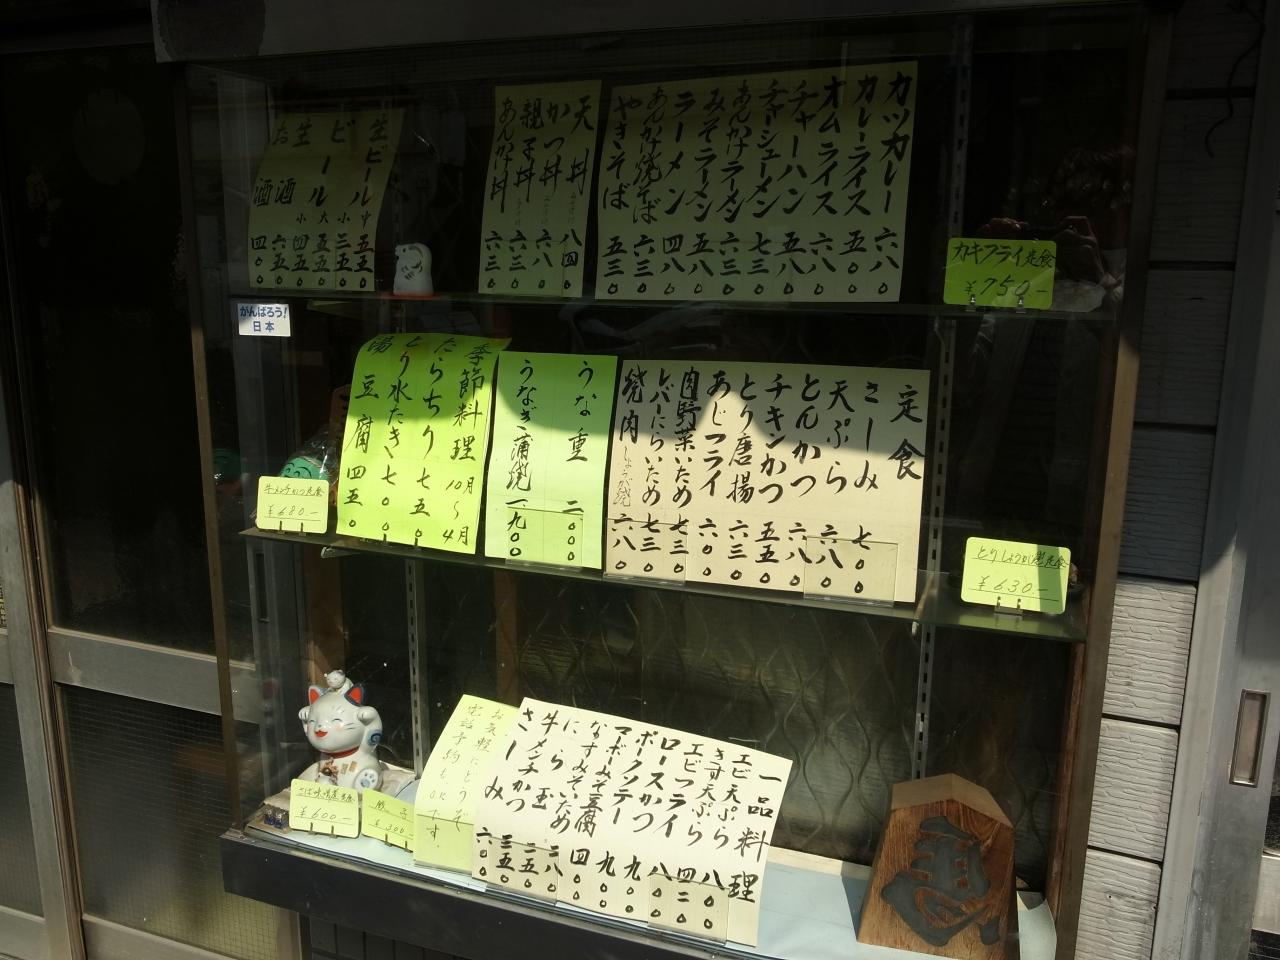 カツカレー 六八〇
カレーライス 五〇〇
オムライス 六八〇
チャーハン 五八〇
チャーシューメン 七三〇
あんかけラーメン 六三〇
みそラーメン 五八〇
ラーメン 四八〇
あんかけ焼そば 六三〇
やきそば 五三〇
天丼 八四〇
かつ丼 六八〇
親子丼 六三〇
あんかけ丼 六三〇
生ビール 中 五五〇
小 三五〇
ビール 大 五五〇
小 四五〇
生酒 六五〇
お酒 四〇〇
カキフライ定食
¥750-
がんばろう!
日本
定食
さしみ 七〇〇
天ぷら 六八〇
とんかつ 六八〇
チキンかつ 五五〇
とり唐揚 六三〇
あじフライ 六〇〇
肉野菜いため 七三〇
レバーにらいため 七三〇
焼肉 しょうが焼 六八〇
うな重 二〇〇〇
うなぎ蒲焼 一、九〇〇
季節料理 10月~4月
たらちり 七五〇
とり水たき 七〇〇
湯豆腐 四五〇
牛メンチかつ定食
¥680-
とりしょうが焼定食
¥630-
一品料理
エビ天ぷら 八〇〇
きす天ぷら 四二〇
エビフライ 八〇〇
ロースかつ
ポークソテー 九〇
マーボーみそ豆腐 九〇
なすみそいため 四〇
にら玉
牛メンチかつ 三五〇
さしみ 六〇〇
お気軽にどうぞ
電話予約もOKです。
さば味噌煮定食
¥600-
餃子
¥300-